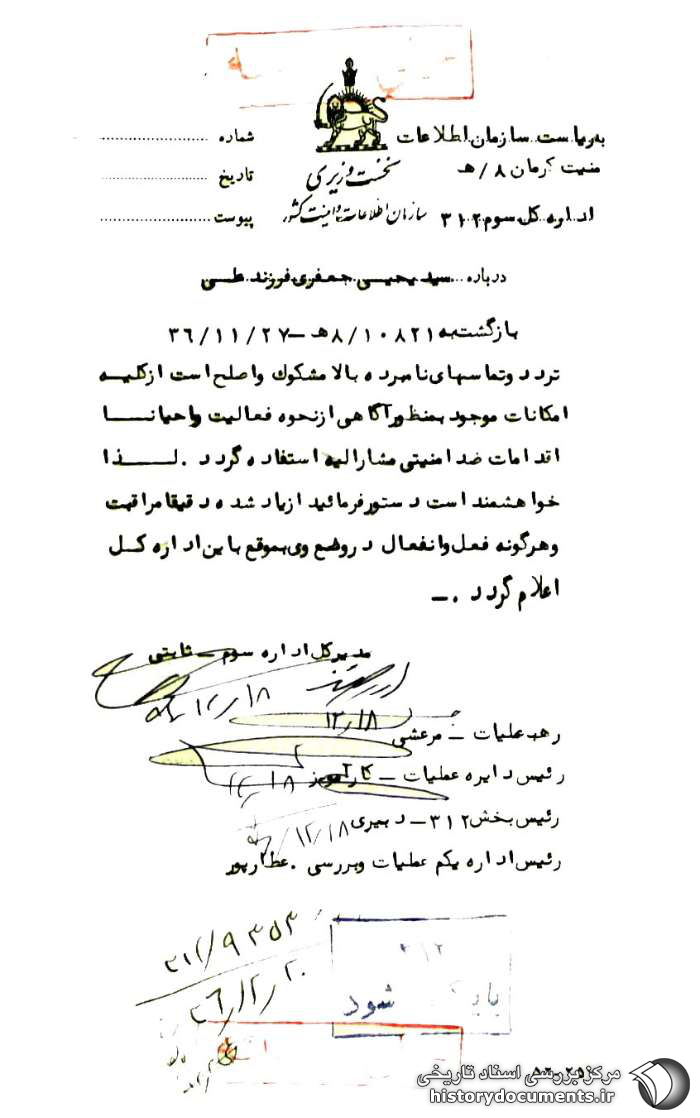 به ریاست سازمان اطلاعات
منیت کرمان ۸/ هـ
اداره کل سوم ۳۱۲
نخست وزیری
سازمان اطلاعات و امنیت کشور
شماره
تاریخ
پیوست
درباره سید یحیی جعفری فرزند علی
بازگشت به ۸/۱۰۸۲۱ هـ – ۳۶/۱۱/۲۷
تردد و تماسهای نامبرده بالا مشکوك و اصلح است از کلیه
امکانات موجود بمنظور آگاهی از نحوه فعالیت و احیانا
اقدامات ضد امنیتی مشارالیه استفاده گردد . لذا
خواهشمند است دستور فرمائید از یاد شده دقیقا مراقبت
و هرگونه فعل و انفعال در وضع وی بموقع باین اداره کل
اعلام گردد . –
مدیر کل اداره سوم – ثابتی
۱۲/۱۸
۱۲/۱۸
رهبر عملیات – مرعشی
رئیس دایره عملیات – کارآموز
رئیس بخش ۳۱۲ – دبیری
۱۲/۱۸
رئیس اداره یکم عملیات و بررسی . عطارپور
۳۱۲/۹۳۵۳
۳۶/۱۲/۲۰
۳۱۲
شود
مرکز بررسی اسناد تاریخی
historydocuments.ir